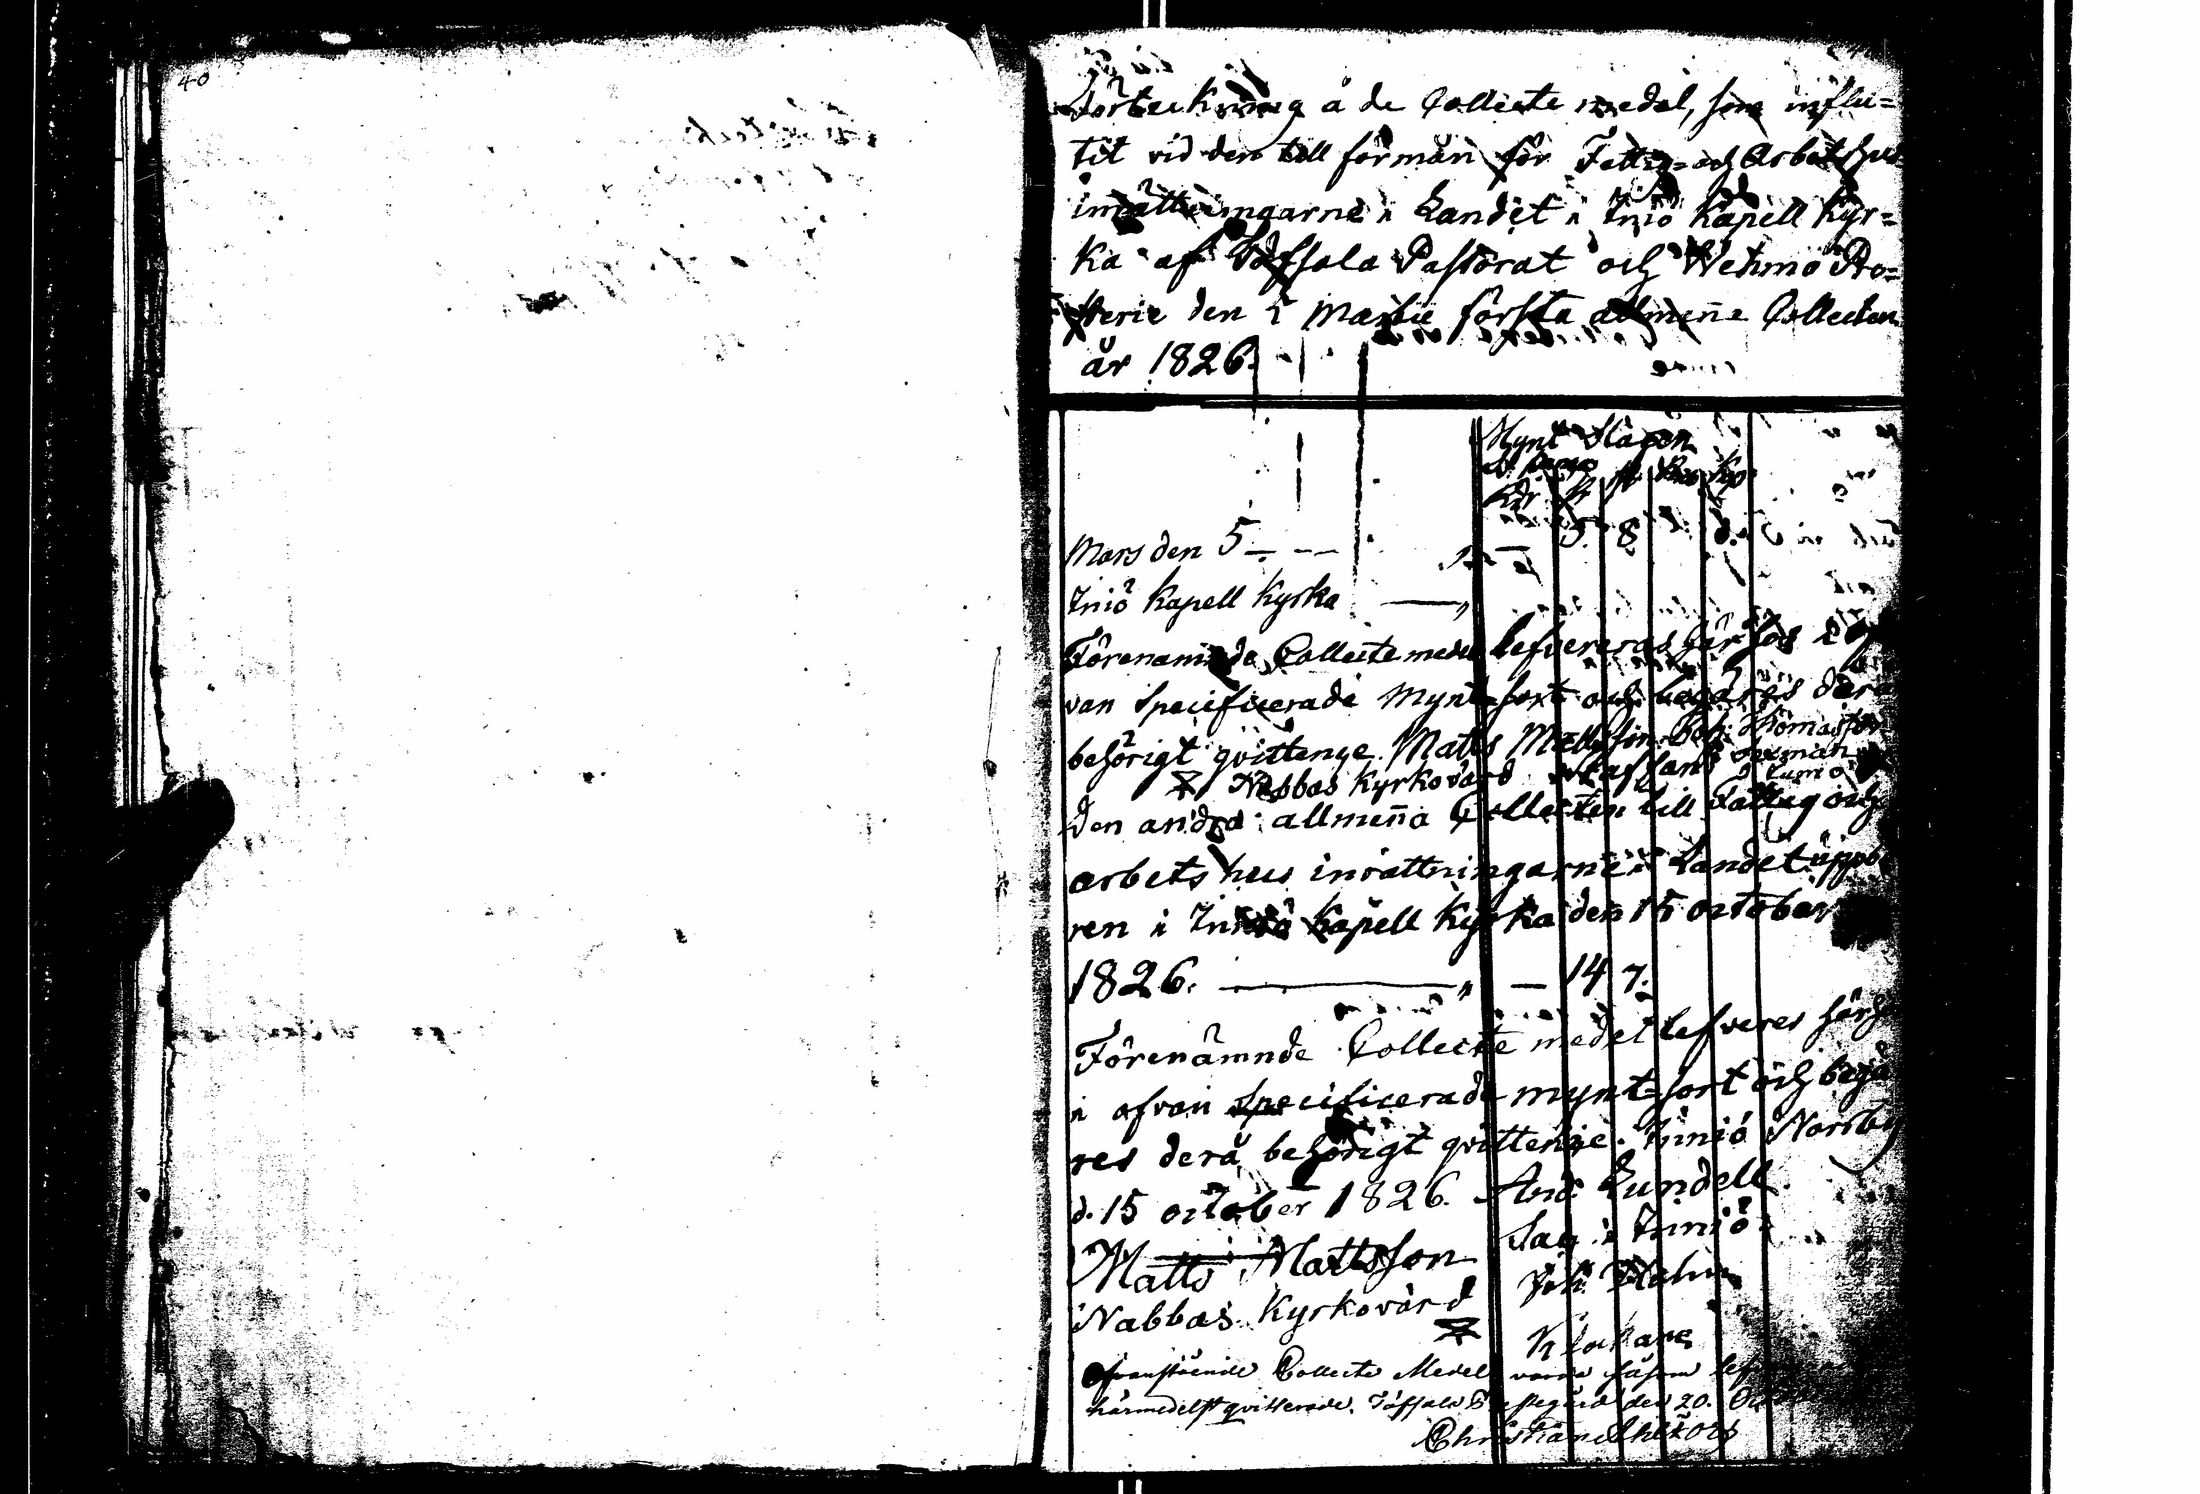 40
Förteckning å de Collecte medel, som influ=
tit vid den till förmån för Fattig= och Arbetshus
inrättningarne i Landet i Iniö Kapell Kyr=
ka af Töfsala Pastorat och Wehmo Pro=
sterie den 5 Martii första allmeña Collecten
år 1826.
Mynt Slagen
Rdr
Mars den 5 — — 5. 8
Iniö Kapell Kyrka —
Förenamnde Collecte medel lefvereras här hos i of
van specificerade Mynt sort och begäres dera
behörigt qvittence. Matts Mattsson Thomasson
Nabbas Kyrkovärd
Den andra allmeña Collecten till Fattig och
arbets hus inrättningarne i Landet uppb
ren i Iniö Kapell Kyrka den 15 october
1826. — " — 14 7.
Förenämnde Collecte medel lefveres härh
i ofvan specificerade mynt=sort och begä
res derå behörigt qvittence. Inniö Norrby
d. 15 october 1826. And Lundell
Matts Mattsson i Inniö
Nabbas Kyrkovärd Joh. Holm
Klockare
Ofvanstående Collecte Medel varda såsom lef
härmedelst qvitterade. Töfsala den 20.
Christian